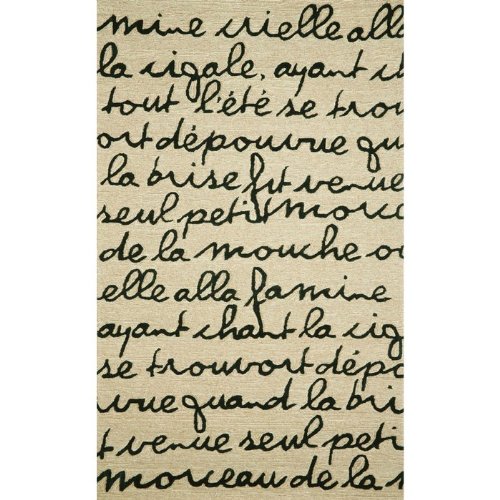 mine vielle alla
la cigale, ayant ch
tout l'été se trouv
ort dépouvue qu
la brise fut venue
seul petit morcea
de la mouche ou
elle alla famine
ayant chant la cig
se trouvort dépo
uvue quand la bri
t venue seul peti
morceau de la m